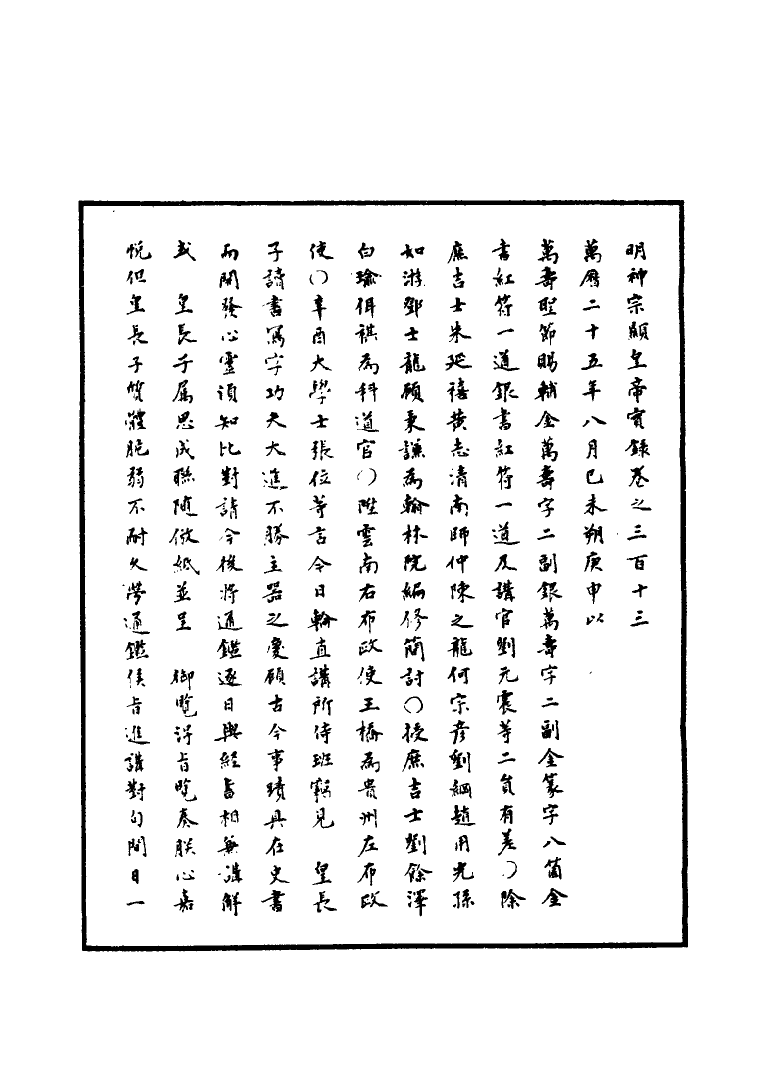 明神宗顯皇帝實錄卷之三百十三
萬曆二十五年八月己未朔庚申以
萬壽聖節賜輔金萬壽字二副銀萬壽字二副金篆字八箇金
書紅符一道銀書紅符一道及講官劉元震等二員有差○除
庶吉士朱延禧黃志清南師仲陳之龍何宗彥劉綱趙用光孫
如游鄧士龍顧秉謙為翰林院編修簡討○授庶吉士劉餘澤
白瑜佴祺為科道官○陞雲南右布政使王橋為貴州左布政
使○辛酉大學士張位等言今日輪直講所侍班竊見　皇長
子讀書寫字功夫大進不勝主器之慶顧古今事蹟具在史書
而開發心靈須知比對請今後將通鑑逐日與經書相兼講解
或　皇長子屬思成聯隨倣紙並呈　御覽得旨覽奏朕心嘉
悅但皇長子質體脆弱不耐久勞通鑑候旨進講對句間日一